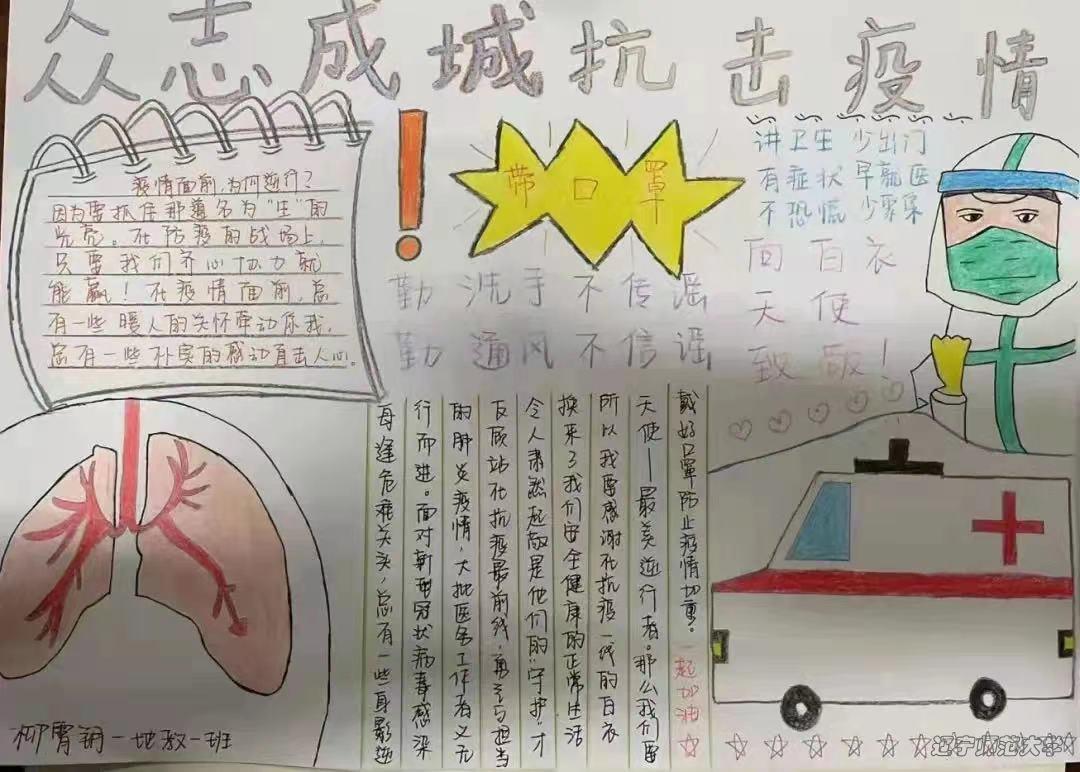 众志成城抗击疫情
疫情面前,为何逆行?
因为要抓住那道名为“生”的
光亮。在防疫的战场上,
只要我们齐心协力就
能赢!在疫情面前,总
有一些暖人的关怀牵动你我,
总有一些朴实的感动直击人心。
带口罩
勤洗手不传谣
勤通风不信谣
讲卫生 少出门
有症状 早就医
不恐慌 少聚集
向白衣
天使
致敬!
每逢危难关头,总有一些身影逆
行而进。面对新型冠状病毒感染
的肺炎疫情,大批医务工作者义无
反顾站在抗疫最前线,勇于担当
令人肃然起敬是他们的“守护,才
换来了我们安全健康的正常生活
所以我要感谢在抗疫一线的白衣
天使——最美逆行者。那么我们要
戴好口罩防止疫情加重。一起加油
地教一班
辽宁师范大学